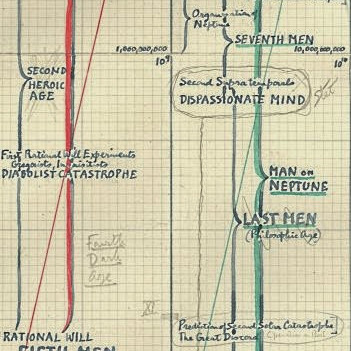 Organization of
Neptune
SEVENTH MEN
1,000,000,000
10,000,000,000
10⁹
SECOND
HEROIC
AGE
Second Supratemporals
DISPASSIONATE MIND
Stet
First Rational Will Experiments
DIABOLIST CATASTROPHE
MAN ON
NEPTUNE
LAST MEN
(Philosophic Age)
Fourth
Dark
Age
XI
Prediction of Second Solar Catastrophe
The Great Discord
RATIONAL WILL
FIFTH MEN